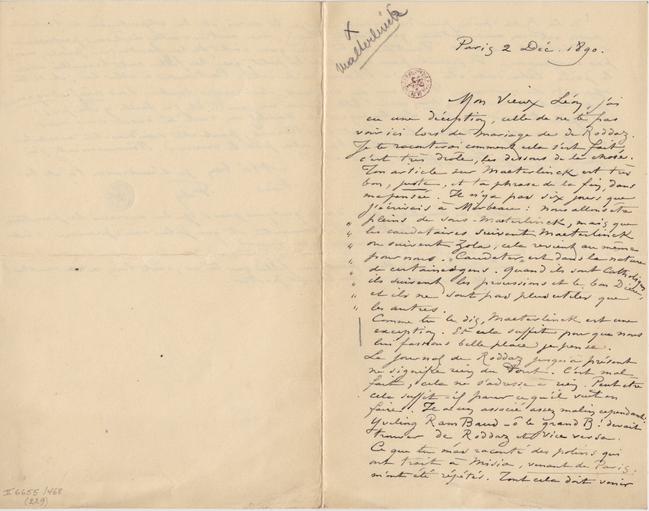 +
Maeterlinck
Paris 2 Déc. 1890.
Mon Vieux Léon, j'ai
eu une déception, celle de ne te pas
voir ici lors du mariage de de Roddaz.
Je te raconterai comment cela s'est fait,
c'est très drôle, les dessous de la chose.
Ton article sur Maeterlinck est très
bon, juste, et ta phrase de la fin, dans
ma pensée. Il n'y a pas six jours que
j'écrivais à : nous allons être
pleins de sous-Maeterlinck, mais que
" les caudataires suivent Maeterlinck
" ou suivent Zola, cela revient au même
" pour nous. Caudater, est dans la nature
" de certaines gens. Quand ils sont Catholiques
" ils suivent les processions et le bon Dieu,
" et ils ne sont pas plus utiles que
" les autres.
Comme tu le dis, Maeterlinck est une
exception. Et cela suffit pour que nous
lui fassions belle place je pense.
Le journal de Roddaz jusqu'à présent
ne signifie rien du tout. C'est mal
fait, cela ne s'adresse à rien. Peut être
cela suffit-il pour ce qu'il veut en
faire. associé assez malin cependant:
Yveling RamBaud - ô le grand B! devait
trouver de Roddaz et vice versa.
Ce que tu m'as raconté des potins qui
ont trait à Misia, venant de Paris:
m'ont été répétés. Tout cela doit venir
II 6655/468
(229)